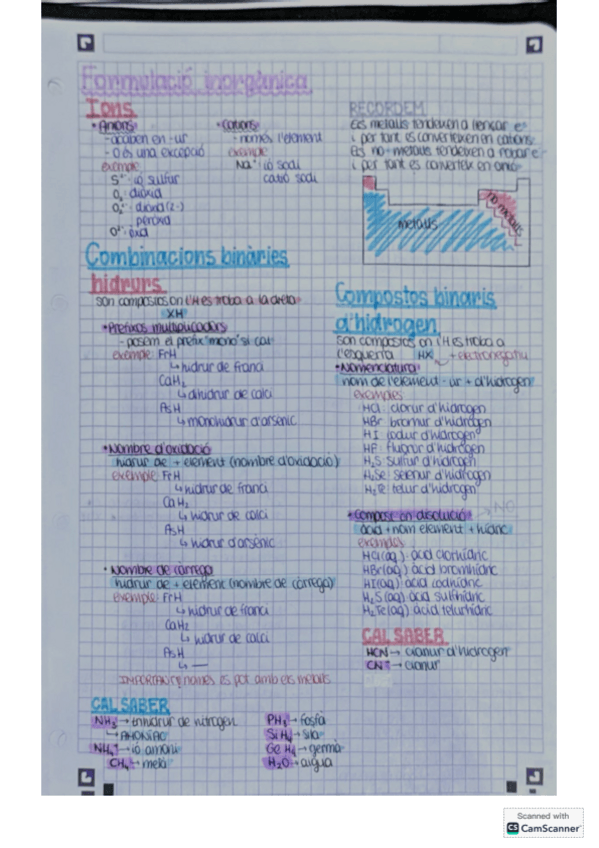 Formulació inorgànica
Ions
• Anions
- acaben en -ur
- O és una excepció
exemple
S²⁻ ió sulfur
O₂ dioxid
O₂²⁻ dioxid (2-)
peròxid
O²⁻ òxid
• Cations
- només l'element
exemple
Na⁺ ió sodi
catió sodi
RECORDEM
Els metalls tendeixen a llençar e⁻
i per tant es converteixen en cations
Els no-metalls tendeixen a robar e⁻
i per tant es converteix en anió
metalls
no metalls
Combinacions binàries
hidrurs
són compostos on l'H es troba a la dreta
XH
• Prefixos multiplicadors
- posem el prefix "mono" si cal
exemple FrH
↳ hidrur de franci
CaH₂
↳ dihidrur de calci
AsH
↳ monohidrur d'arsènic
• Nombre d'oxidació
hidrur de + element (nombre d'oxidació)
exemple FrH
↳ hidrur de franci
CaH₂
↳ hidrur de calci
AsH
↳ hidrur d'arsènic
• Nombre de càrrega
hidrur de + element (nombre de càrrega)
exemple FrH
↳ hidrur de franci
CaH₂
↳ hidrur de calci
AsH
↳ —
IMPORTANT només es pot amb els metalls
Compostos binaris
d'hidrogen
són compostos on l'H es troba a
l'esquerra HX + electronegatiu
• Nomenclatura
nom de l'element - ur + d'hidrogen
exemples
HCl clorur d'hidrogen
HBr bromur d'hidrogen
HI iodur d'hidrogen
HF fluorur d'hidrogen
H₂S sulfur d'hidrogen
H₂Se selenur d'hidrogen
H₂Te telur d'hidrogen
NO
• Compost en dissolució
àcid + nom element + hídric
exemples
HCl(aq) àcid clorhídric
HBr(aq) àcid bromhídric
HI(aq) àcid iodhídric
H₂S(aq) àcid sulfhídric
H₂Te(aq) àcid telurhídric
CAL SABER
HCN → cianur d'hidrogen
CN⁻ → cianur
CAL SABER
NH₃ → trihidrur de nitrogen
↳ AMONÍAC
NH₄⁺ → ió amoni
CH₄ → metà
PH₃ → fosfà
SiH₄ → silà
GeH₄ → germà
H₂O → aigua
Scanned with
CS CamScanner